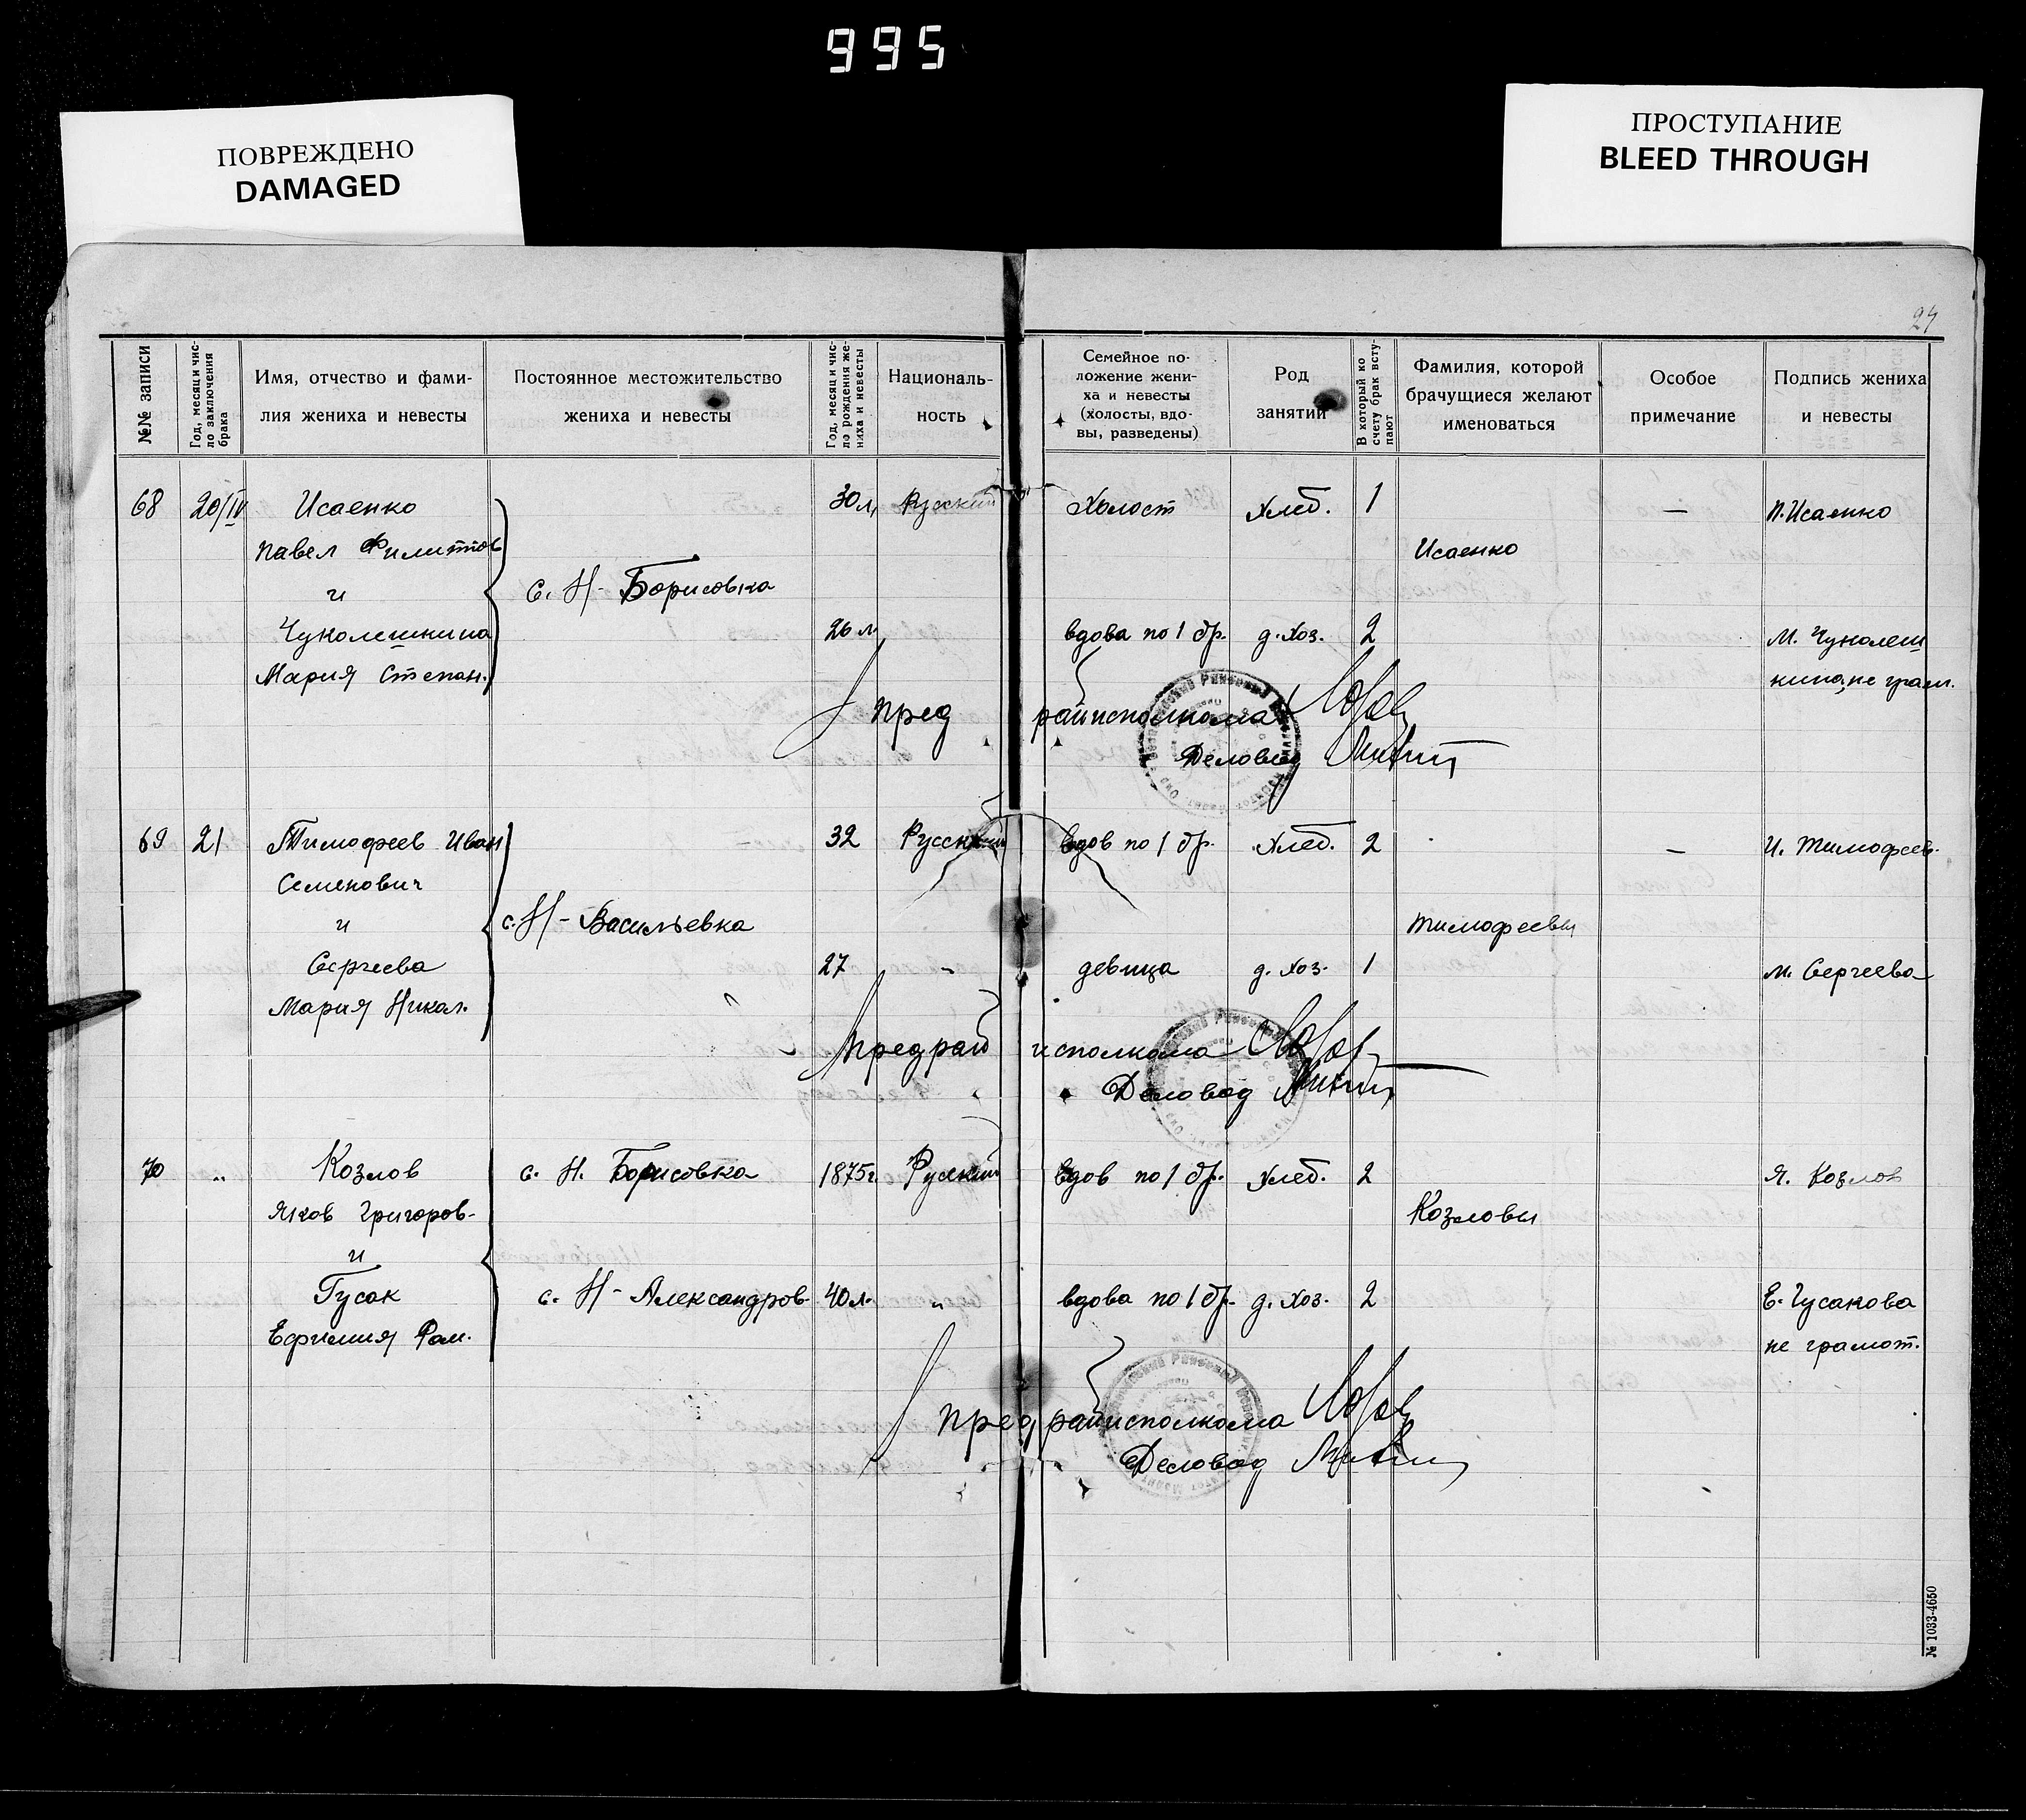 995
ПОВРЕЖДЕНО
DAMAGED
ПРОСТУПАНИЕ
BLEED THROUGH
24
№№ записи
Год, месяц и чис-
ло заключения
брака
Имя, отчество и фами-
лия жениха и невесты
Постоянное местожительство
жениха и невесты
Год, месяц и чис-
ло рождения же-
ниха и невесты
Националь-
ность
Семейное по-
ложение жени-
ха и невесты
(холосты, вдо-
вы, разведены)
Род
занятий
В который ко
счету брак всту-
пают
Фамилия, которой
брачущиеся желают
именоваться
Особое
примечание
Подпись жениха
и невесты
68 20/IV Исаенко 30 л. Русский Холост Хлеб. 1 — П. Исаенко
Павел Филиппов Исаенко
и с. Н-Борисовка
Чуколешкина 26 л. вдова по 1 бр. д. хоз. 2 М. Чуколеш
Мария Степан. кина, не грам.
Пред райисполкома
Деловод
69 21 Тимофеев Иван 32 Русский вдов по 1 бр. Хлеб. 2 — И. Тимофеев.
Семенович
и с. Н-Васильевка Тимофеевы
Сергеева 27 " девица д. хоз. 1 М. Сергеева
Мария Никол.
Предрай исполкома
Деловод
70 " Козлов с. Н. Борисовка 1875 г. Русский вдов по 1 бр. Хлеб. 2 Я. Козлов
Яков Григоров- Козловы
и
Гусак с. Н-Александров- 40 л. " вдова по 1 бр. д. хоз. 2 Е. Гусакова
Ефимия Ром. не грамот.
Пред райисполкома
Деловод
№ 1033-4650